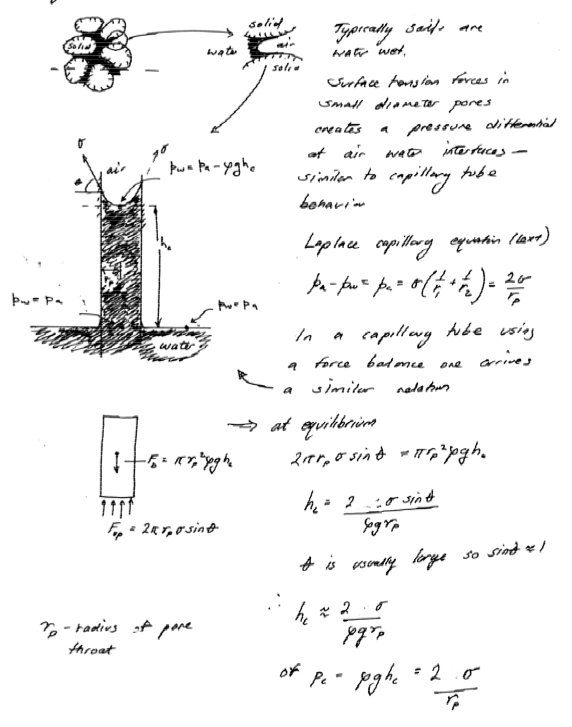 solid
solid
water
air
solid
Typically soils are
water wet.
Surface tension forces in
small diameter pores
creates a pressure differential
at air water interfaces —
similar to capillary tube
behavior
σ
σ
air
θ
p_w = p_a - ρgh_c
h_c
p_w = p_a
p_w = p_a
water
Laplace capillary equation (text)
p_a - p_w = p_c = σ(1/r_1 + 1/r_2) = 2σ/r_p
In a capillary tube using
a force balance one arrives
a similar relation
⇒ at equilibrium
F_D = π r_p² ρgh_c
F_up = 2π r_p σ sinθ
2π r_p σ sinθ = π r_p² ρgh_c
h_c = 2 σ sinθ / ρg r_p
θ is usually large so sinθ ≈ 1
∴ h_c ≈ 2 σ / ρg r_p
r_p - radius of pore
throat
or p_c = ρgh_c = 2 σ / r_p